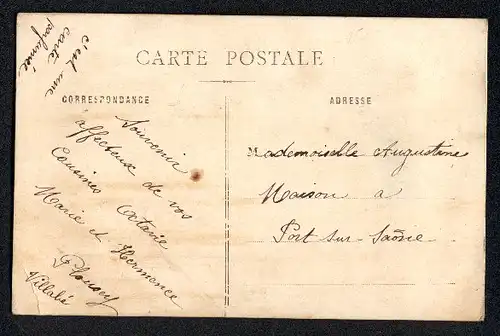 c'est une
carte
parfumée
CARTE POSTALE
CORRESPONDANCE
Souvenir
affectueux de vos
Cousines Octavie
Marie et Hermance
Villabé
ADRESSE
Mademoiselle Augustine
Maison a
Port sur Saône